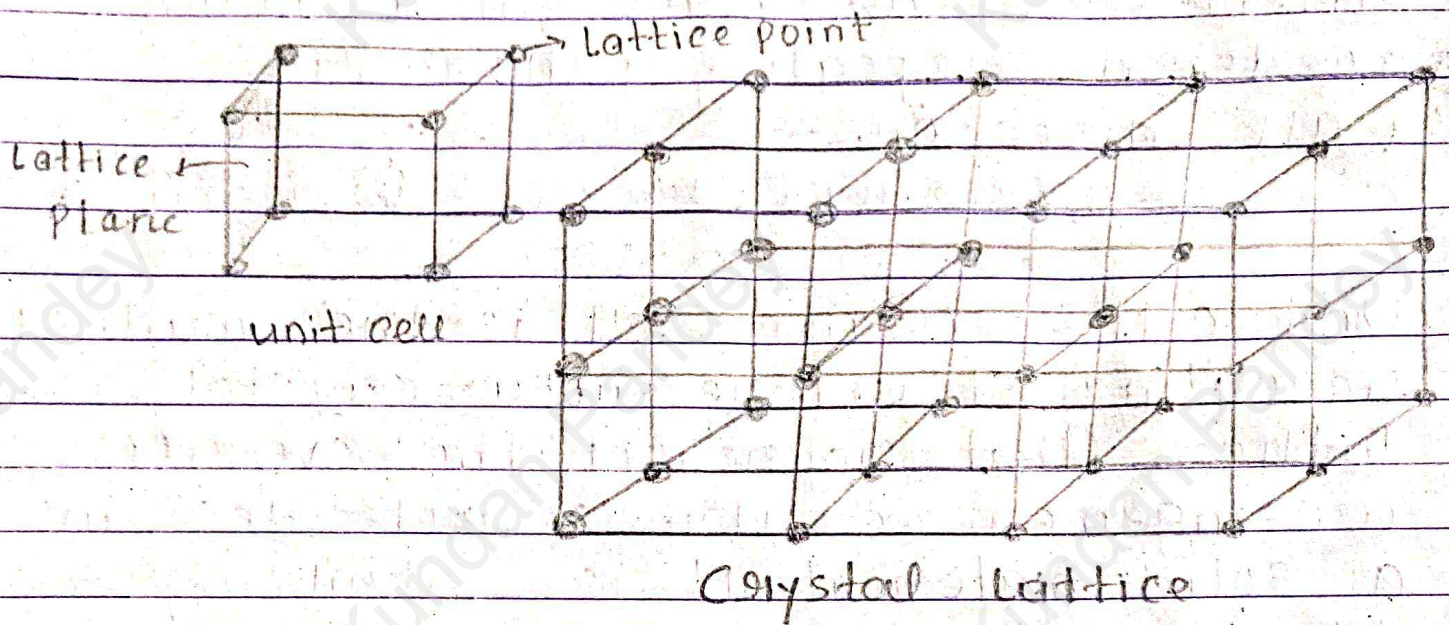 Lattice point
Lattice
Plane
unit cell
Crystal Lattice
Kundan Pandey
Kundan Pandey